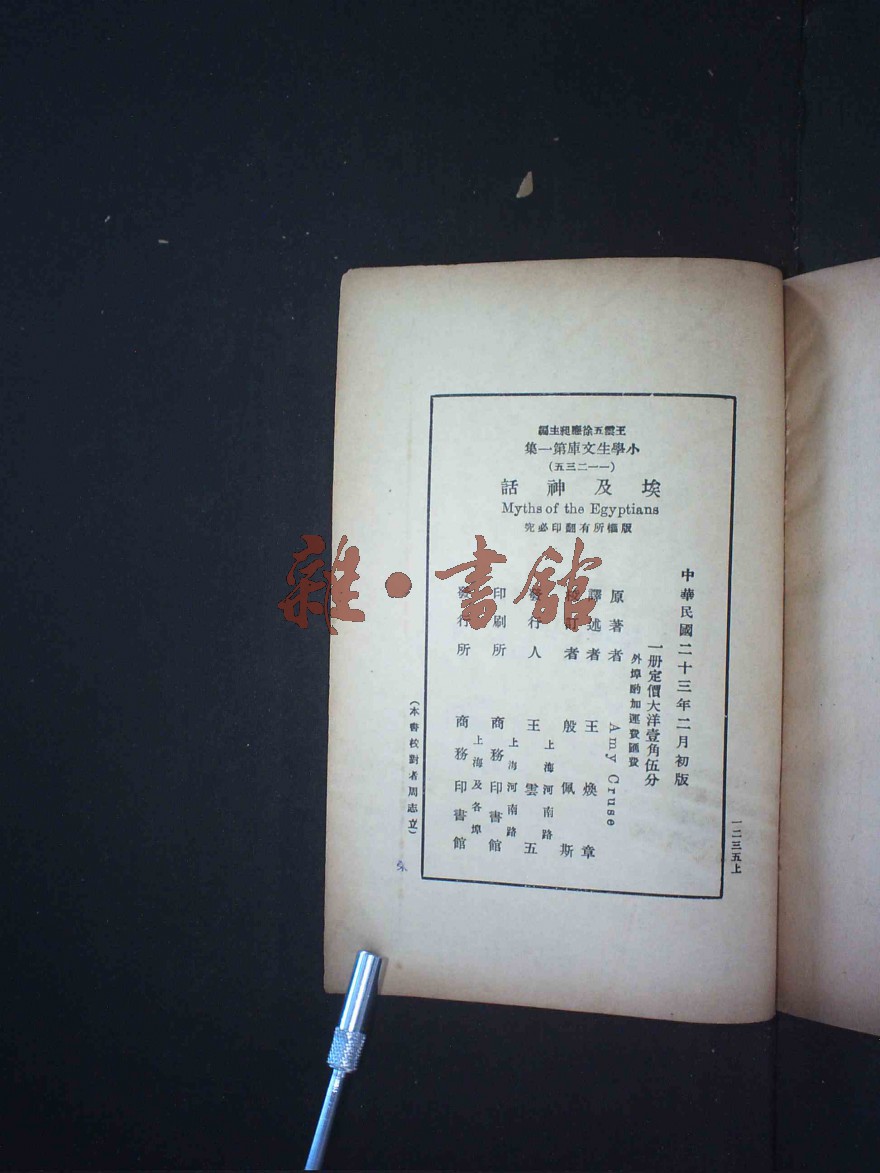 王雲五徐應昶主編
小學生文庫第一集
(一一二三五)
埃及神話
Myths of the Egyptians
版權所有翻印必究
中華民國二十三年二月初版
一册定價大洋壹角伍分
外埠酌加運費匯費
原著者 Amy Cruse
譯述者 王煥章
校訂者 殷佩斯
發行人 王雲五
上海河南路
印刷所 商務印書館
上海河南路
發行所 商務印書館
上海及各埠
(本書校對者周志立)
一二三五上
雜·書館